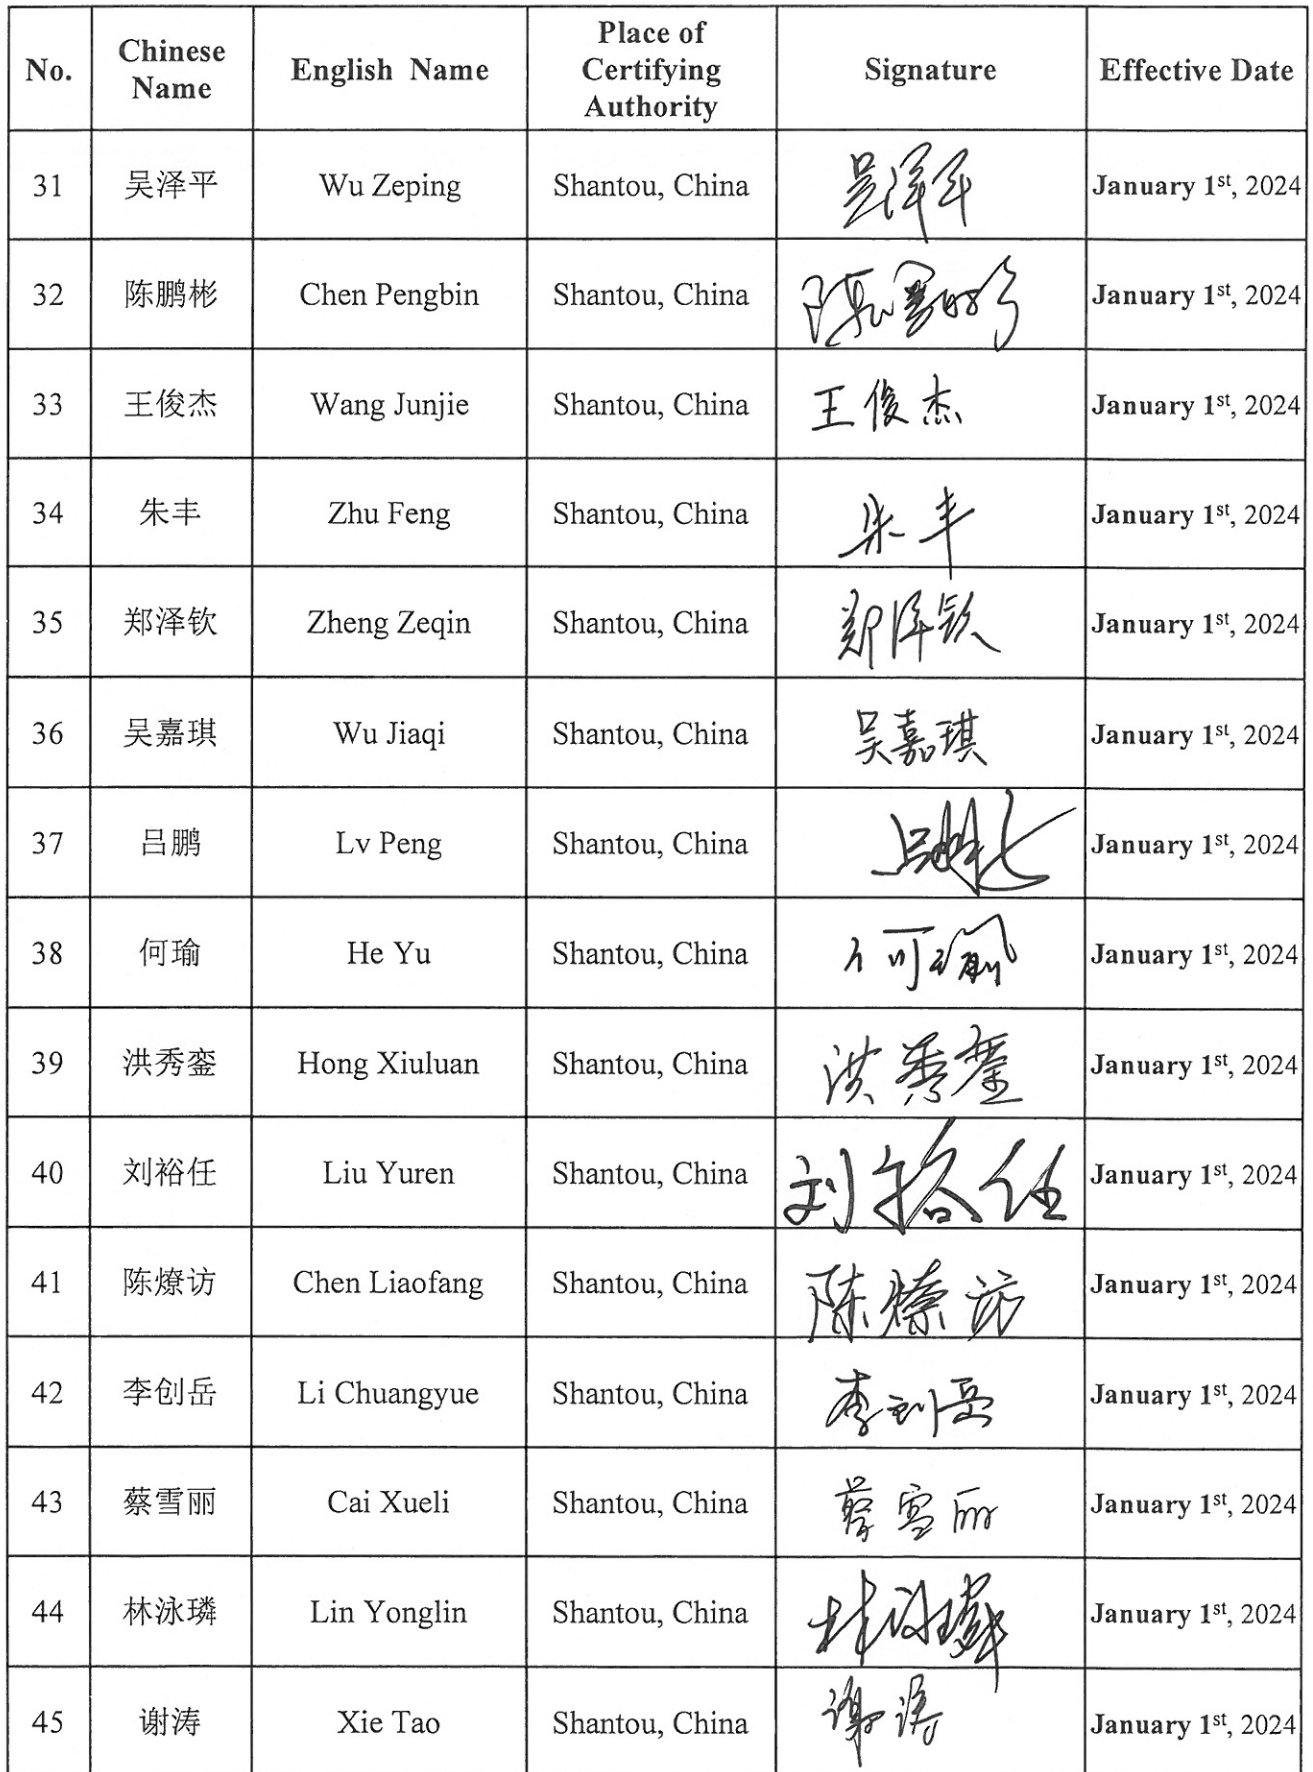 No. Chinese Name English Name Place of Certifying Authority Signature Effective Date
31 吴泽平 Wu Zeping Shantou, China 吴泽平 January 1st, 2024
32 陈鹏彬 Chen Pengbin Shantou, China January 1st, 2024
33 王俊杰 Wang Junjie Shantou, China 王俊杰 January 1st, 2024
34 朱丰 Zhu Feng Shantou, China 朱丰 January 1st, 2024
35 郑泽钦 Zheng Zeqin Shantou, China 郑泽钦 January 1st, 2024
36 吴嘉琪 Wu Jiaqi Shantou, China 吴嘉琪 January 1st, 2024
37 吕鹏 Lv Peng Shantou, China January 1st, 2024
38 何瑜 He Yu Shantou, China 何瑜 January 1st, 2024
39 洪秀銮 Hong Xiuluan Shantou, China 洪秀銮 January 1st, 2024
40 刘裕任 Liu Yuren Shantou, China 刘裕任 January 1st, 2024
41 陈燎访 Chen Liaofang Shantou, China 陈燎访 January 1st, 2024
42 李创岳 Li Chuangyue Shantou, China 李创岳 January 1st, 2024
43 蔡雪丽 Cai Xueli Shantou, China 蔡雪丽 January 1st, 2024
44 林泳璘 Lin Yonglin Shantou, China 林泳璘 January 1st, 2024
45 谢涛 Xie Tao Shantou, China 谢涛 January 1st, 2024